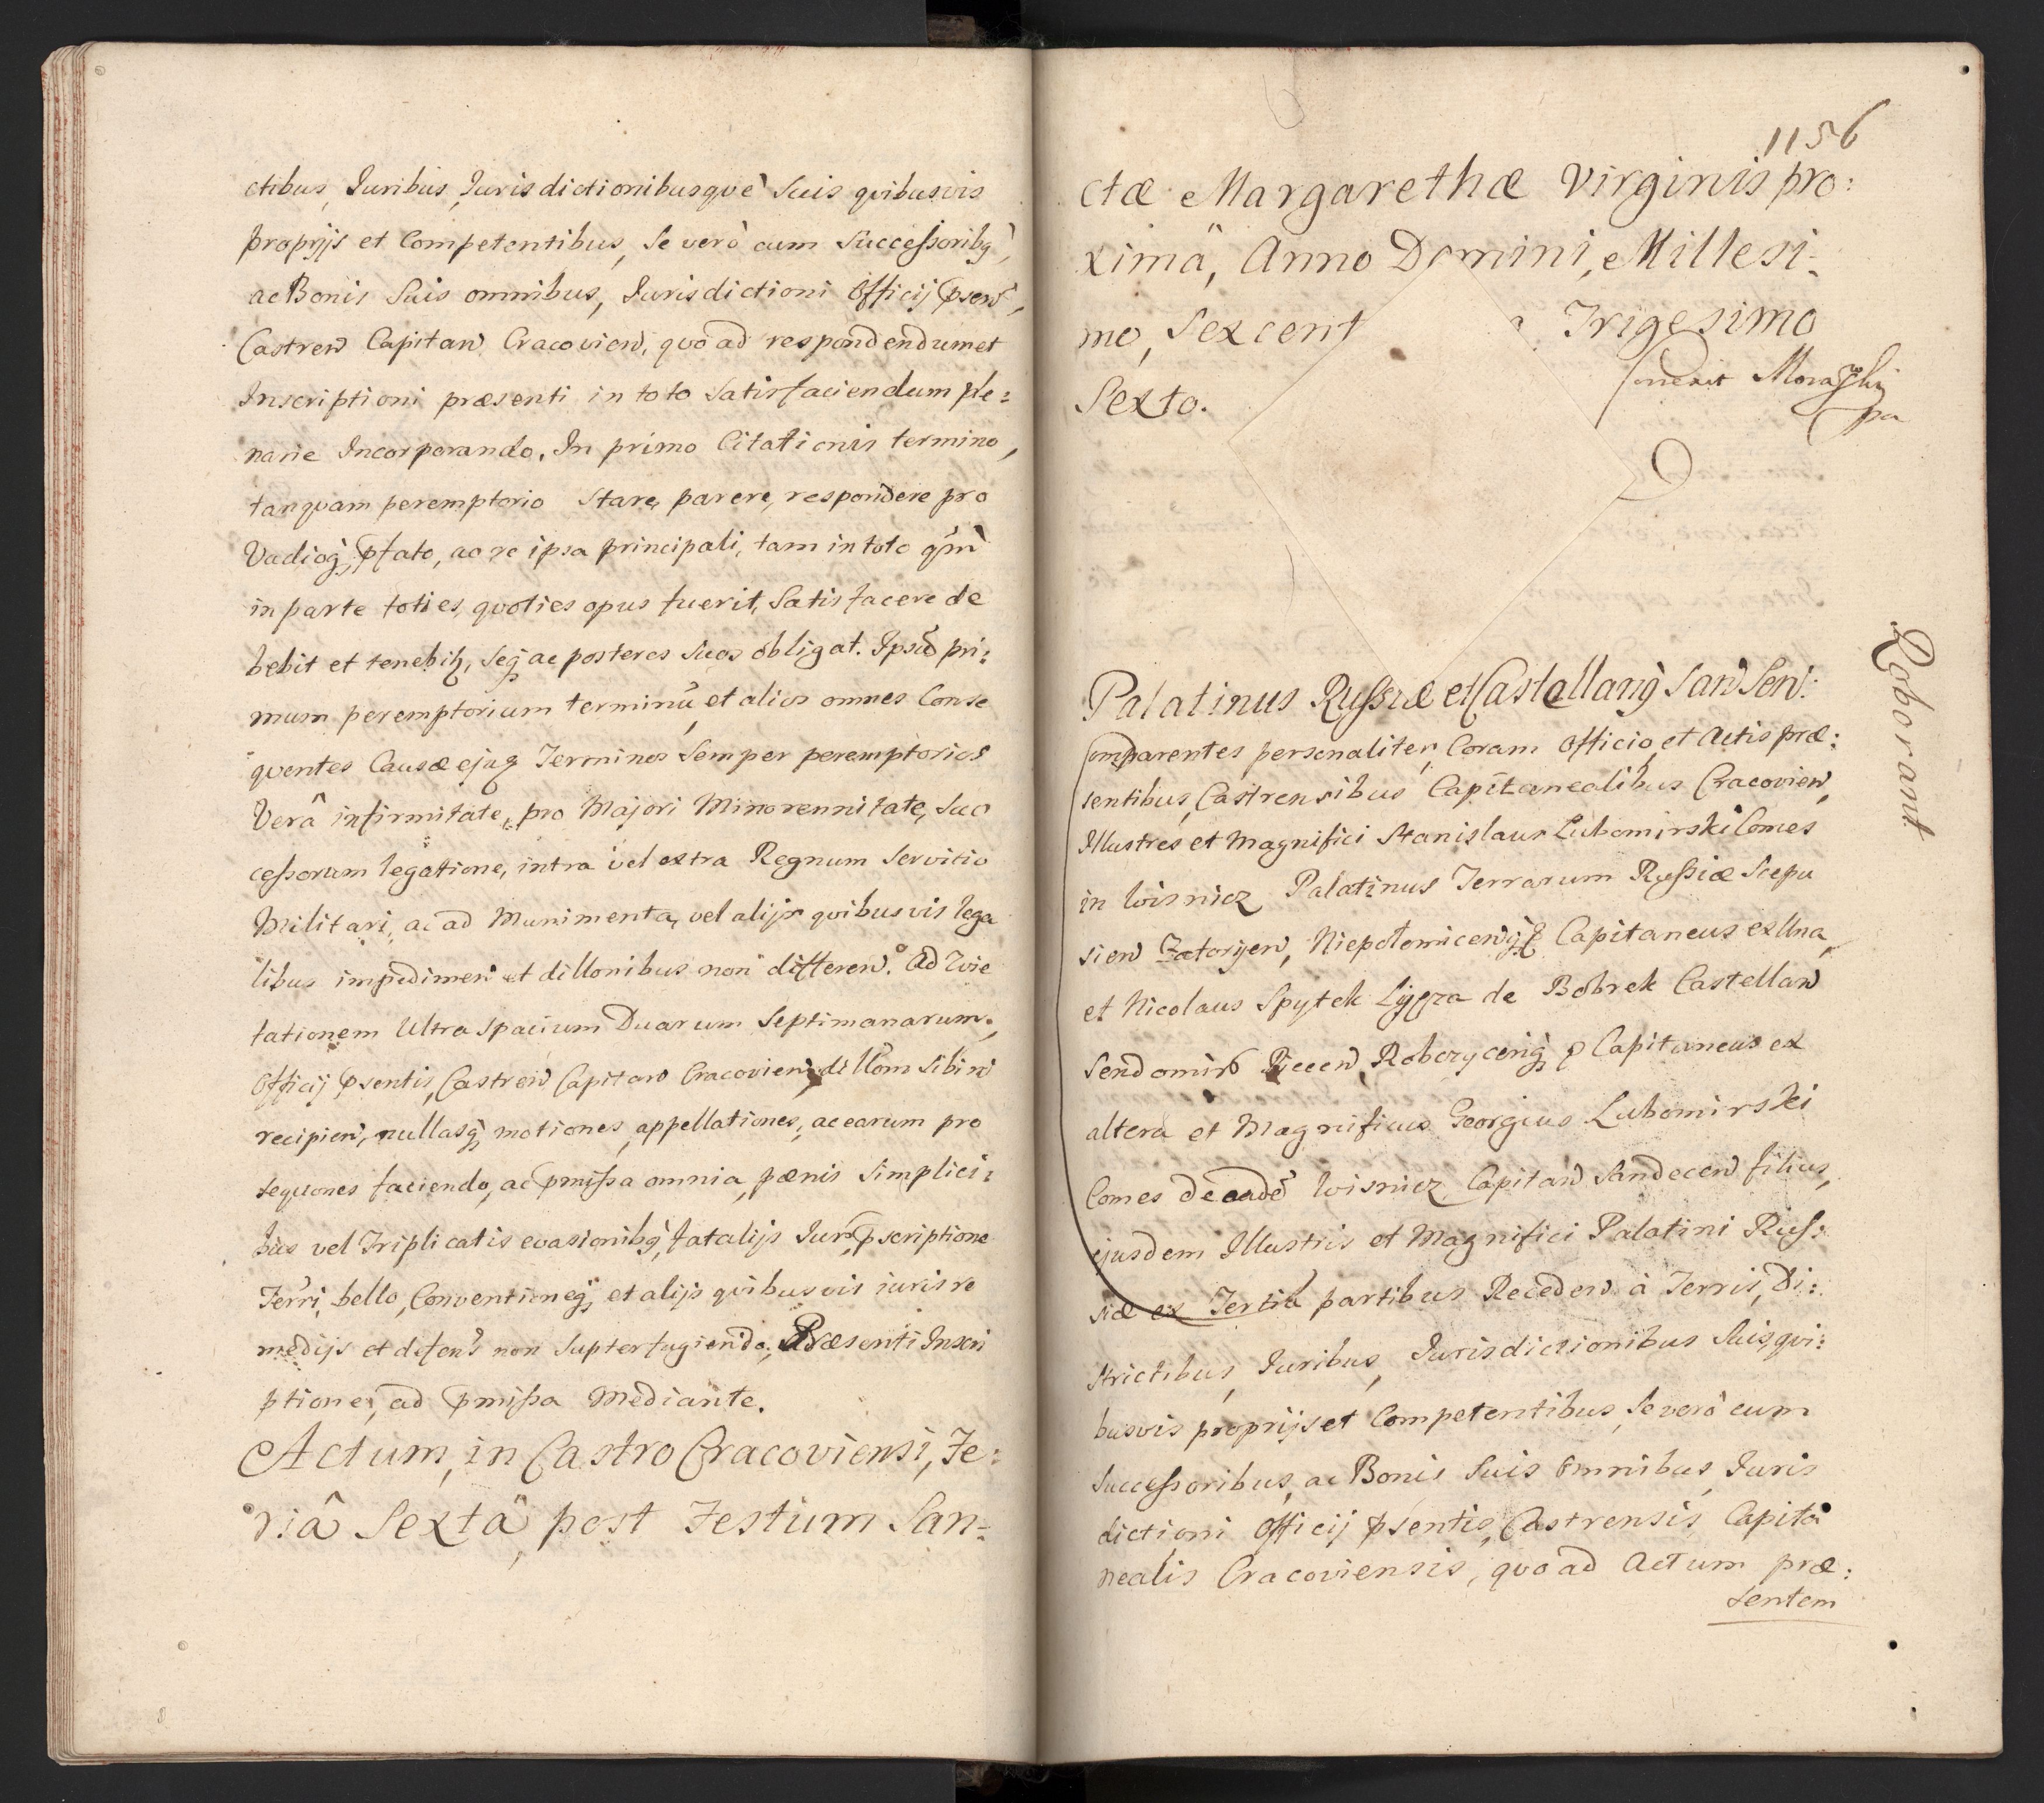 ctibus, Iuribus, Jurisdictionibusquè Suis quibusvis
proprijs et Competentibus, Se verò cum Successoribq,
ac Bonis Suis omnibus, Jurisdictioni Officij psen,
Castren Capitan Cracovien, quo ad respondendum et
Inscriptioni præsenti in toto Satisfaciendum ple:
narie Incorporando, In primo Citationis termino,
tanquam peremptorio Stare, parere, respondere pro
Vadioq, pfato, ac re ipsa principali, tam in toto qm
in parte toties, quoties opus fuerit, Satisfacere de
bebit et tenebit, Seq ac posteros Suos obligat. Ipsu pri:
mum peremptorium terminu, et alios omnes Conse
quentes Causæ ejuq Terminos Semper peremptorios
Verâ infirmitate, pro Majori Minorennitate, Suc
cessorum legatione, intra vel extra Regnum Servitio
Militari, ac ad Munimenta, vel alijs quibusvis lega
libus impedimen et dillonibus non differen. Ad Wie
tationem Ultra Spacium Duarum Septimanarum,
Officij psentis, Castren Capitan Cracovien, dillom Sibi n
recipien, nullasq motiones, appellationes, ac earum pro
sequones faciendo, ac pmissa omnia, pænis Simplici:
bus vel Triplicatis evasionibq, fatalijs Iur, pscriptione
Terri, bello, Conventioneq, et alijs quibusvis iuris re
medijs et defens non Supterfugiendo, Præsenti Inscri
ptione, ad pmissa Mediante.
Actum, in Castro Cracoviensi, Fe:
riâ Sextâ, post Festum San:
1156
ctæ Margarethæ Virginis pro:
ximâ, Anno Domini, Millesi:
mo, Sexcent Trigesimo
Sexto.
Palatinus Russiæ et Castellanq San Sen:
Roborant
Comparentes personaliter, Coram Officio, et Actis præ:
sentibus, Castrensibus Capitanealibus Cracovien,
Illustres et Magnifici Stanislaus Lubomirski Comes
in Wisnicz Palatinus Terrarum Russiæ Scepu
sien Zatorijen, Niepołomicenq Capitaneus ex Una,
et Nicolaus Spytek Ligęza de Bobrek Castellan
Sendomir Biecen, Robczycenq Capitaneus ex
altera et Magnificus Georgius Lubomirski
Comes de eade Wisnicz Capitan Sandecen filius,
ejusdem Illustris et Magnifici Palatini Rus:
siæ ex Tertia partibus Receden à Terris, Di:
strictibus, Juribus, Jurisdictionibus Suis, qui:
busvis proprijs et Competentibus, Se verò cum
Successoribus, ac Bonis Suis Omnibus, Juris
dictioni Officij psentis, Castrensis, Capita
nealis Cracoviensis, quo ad Actum præ:
sentem